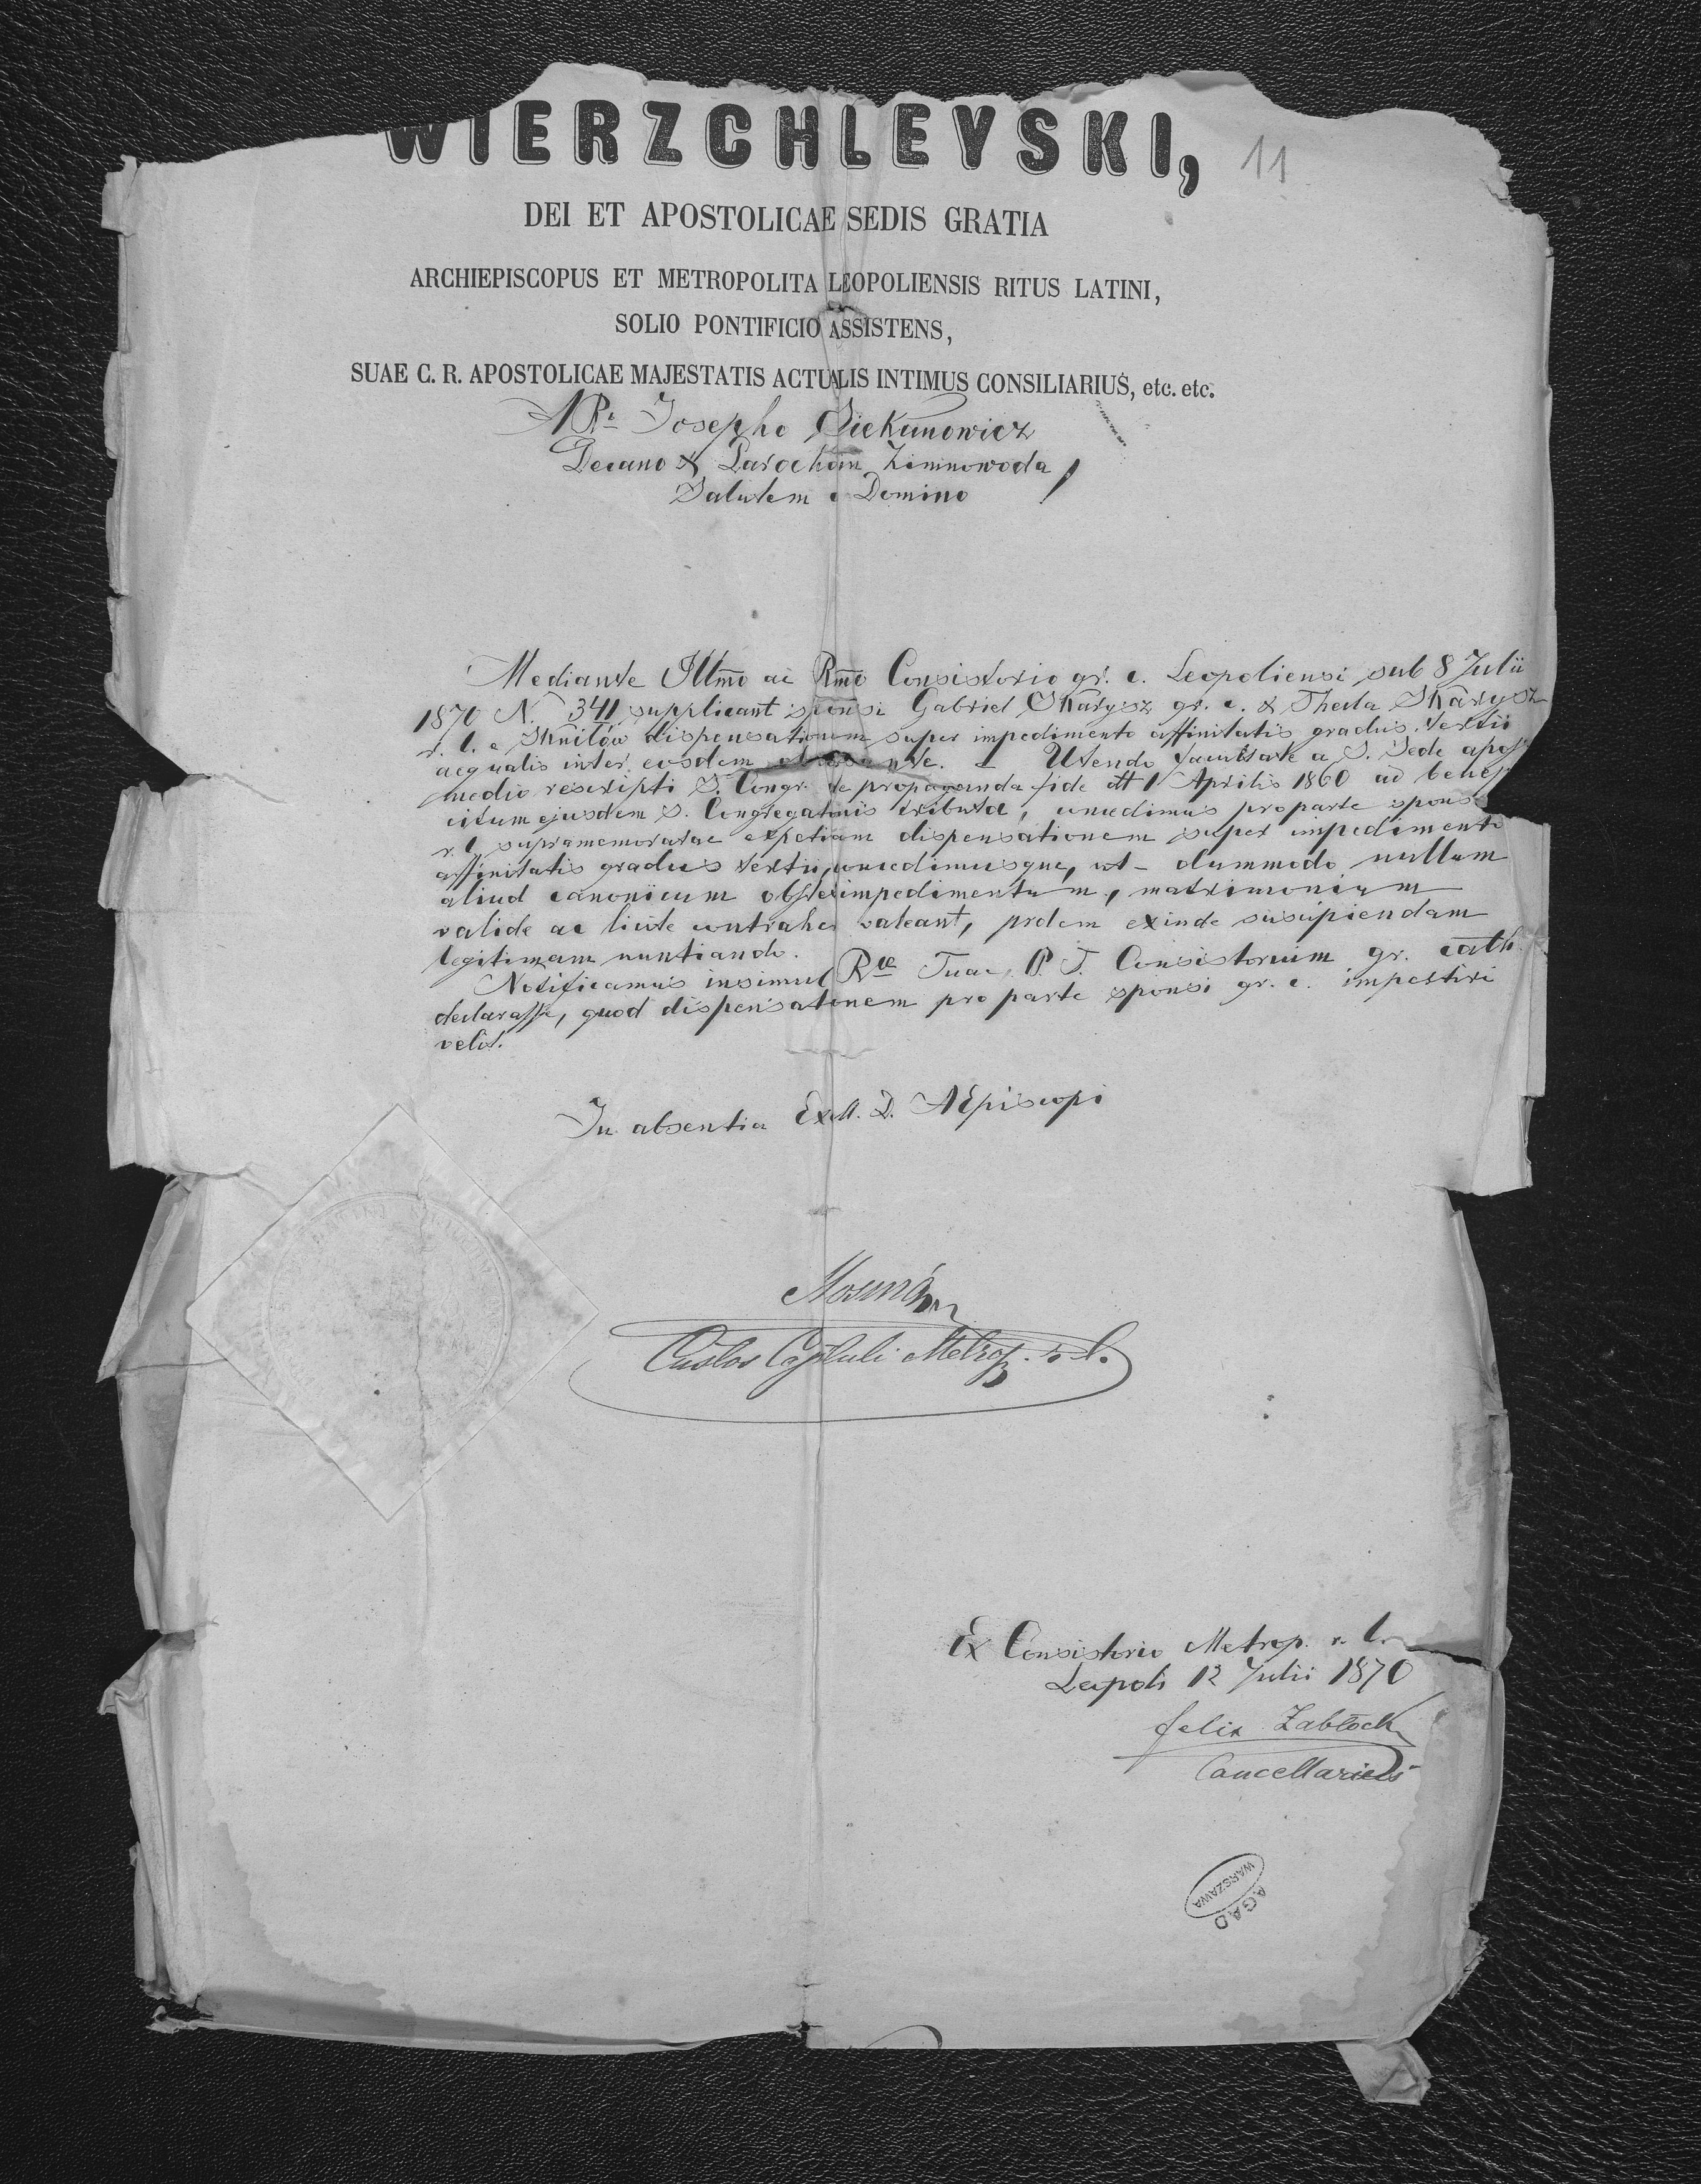 WIERZCHLEYSKI,
11
DEI ET APOSTOLICAE SEDIS GRATIA
ARCHIEPISCOPUS ET METROPOLITA LEOPOLIENSIS RITUS LATINI,
SOLIO PONTIFICIO ASSISTENS,
SUAE C. R. APOSTOLICAE MAJESTATIS ACTUALIS INTIMUS CONSILIARIUS, etc. etc.
Josepho
Decano & Parocho in Zimnowoda
Salutem a Domino
Mediante Illmo ac Rmo Consistorio gr. c. Leopoliensi sub 8 Julii
1870 N. 3411 supplicant sponsi Gabriel Skarysz gr. c. & Thecla Skarysz
r. l. e Skniłów dispensationem super impedimento affinitatis gradus tertii
aequalis inter eosdem obversante. Utendo facultate a S. Sede apost
medio rescripti S. Congr. de propaganda fide dtt 1 Aprilis 1860 ad bene
citum ejusdem S. Congregationis tributa, concedimus pro parte sponsae
r. l. supramemoratae expetitam dispensationem super impedimento
affinitatis gradus tertii, concedimusque, ut - dummodo nullum
aliud canonicum obstet impedimentum, matrimonium
valide ac licite contrahere valeant, prolem exinde suscipiendam
legitimam nuntiando.
Notificamus insimul Rae Tuae, P. T. Consistorium gr. cath.
declarasse, quod dispensationem pro parte sponsi gr. c. impertiri
velit.
In absentia Excell. D. AEpiscopi
Custos Capituli Metrop. r. l.
Ex Consistorio Metrop. r. l.
Leopoli 12 Julii 1870
Felix Zabłocki
Cancellarius
A.G.A.D
WARSZAWA